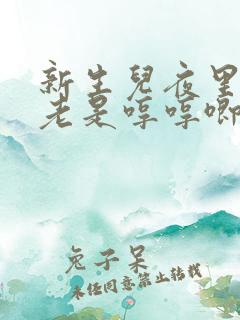 新生兒夜里
老是哼哼唧
兔子呆
未经同意禁止转载